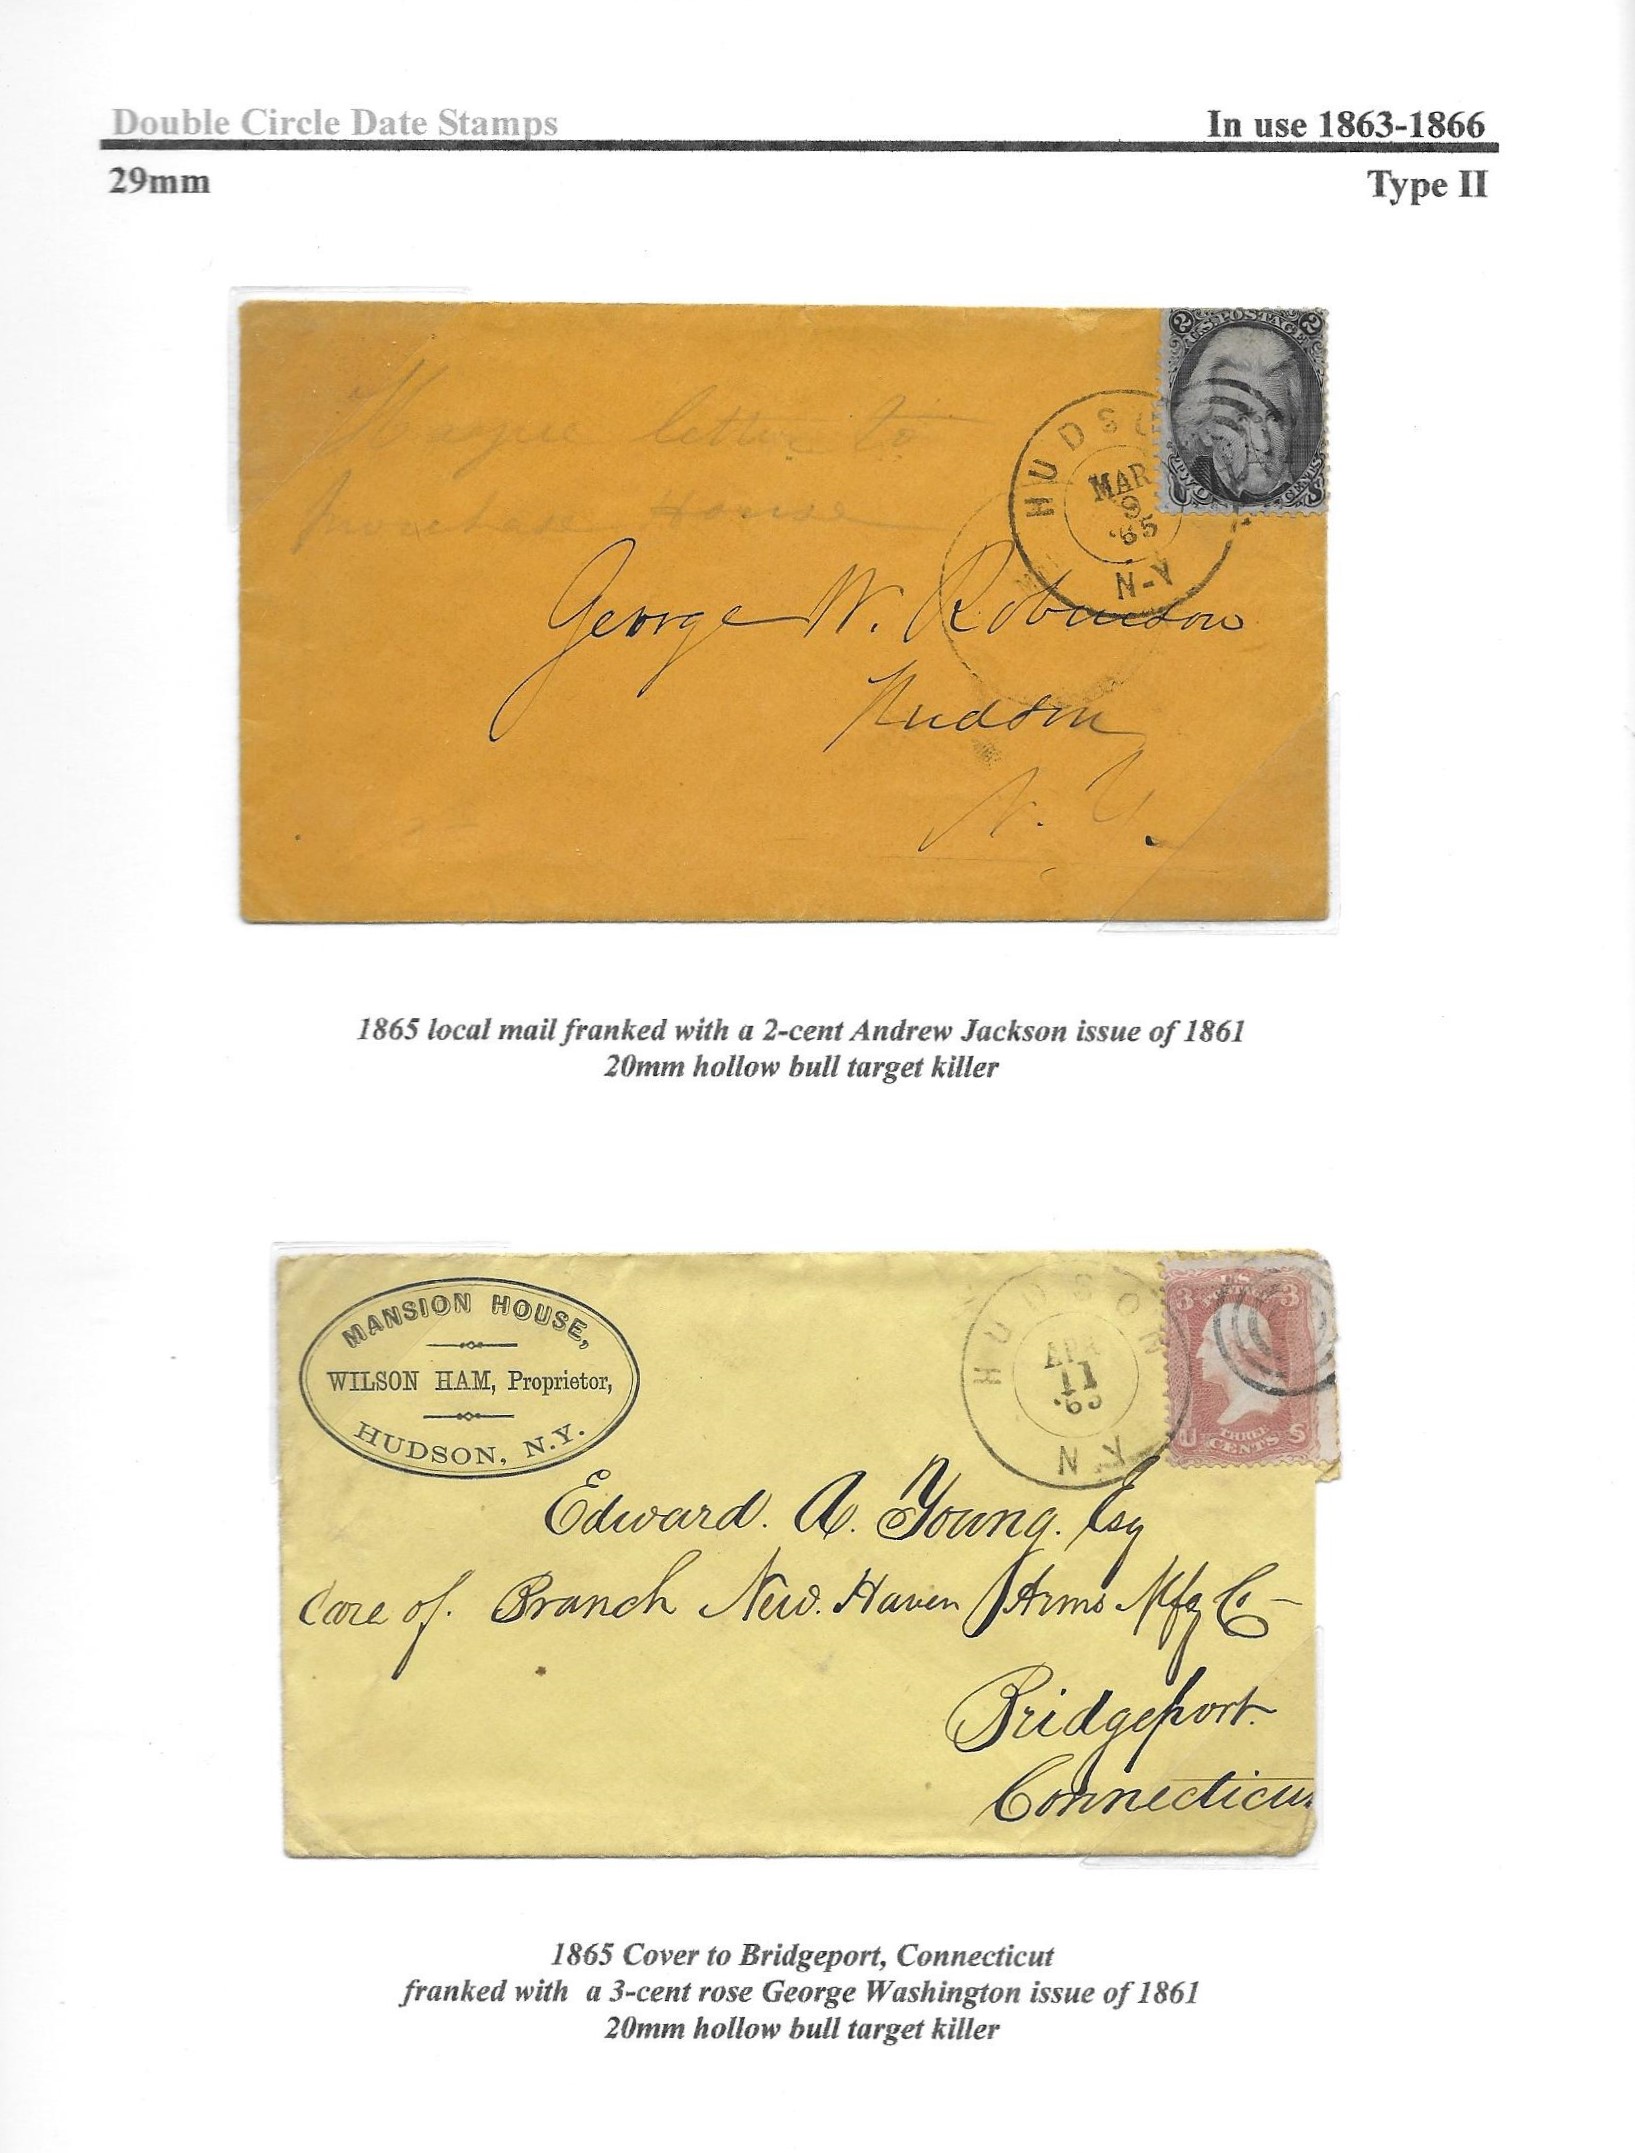 Double Circle Date Stamps
In use 1863-1866
29mm
Type II
2 U.S. POSTAGE 2
CENTS
HUDSO
MAR
9
'65
N-Y
letter to
purchase House
George W. Robinson
Hudson
N. Y.
1865 local mail franked with a 2-cent Andrew Jackson issue of 1861
20mm hollow bull target killer
MANSION HOUSE,
WILSON HAM, Proprietor,
HUDSON, N.Y.
HUDSON
APR
11
'65
N.Y.
3 U.S. 3
U THREE CENTS S
Edward. A. Young. Esq
Care of. Branch New. Haven Arms Mfg Co-
Bridgeport.
Connecticu
1865 Cover to Bridgeport, Connecticut
franked with a 3-cent rose George Washington issue of 1861
20mm hollow bull target killer